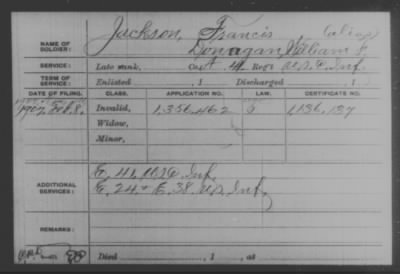 Jackson, Francis (alias)
NAME OF SOLDIER: Donagan, William F
SERVICE: Late rank, Co. A 41 Reg't U.S.C. Inf.
TERM OF SERVICE: Enlisted , 1 Discharged , 1
DATE OF FILING. CLASS. APPLICATION NO. LAW. CERTIFICATE NO.
1907, Feb. 8. Invalid, 1,356,462 1,136,137
Widow,
Minor,
ADDITIONAL SERVICES: E. 41, U.S.C. Inf.
E. 24, & E. 38. U.S. Inf.
REMARKS:
Died , 1 , at